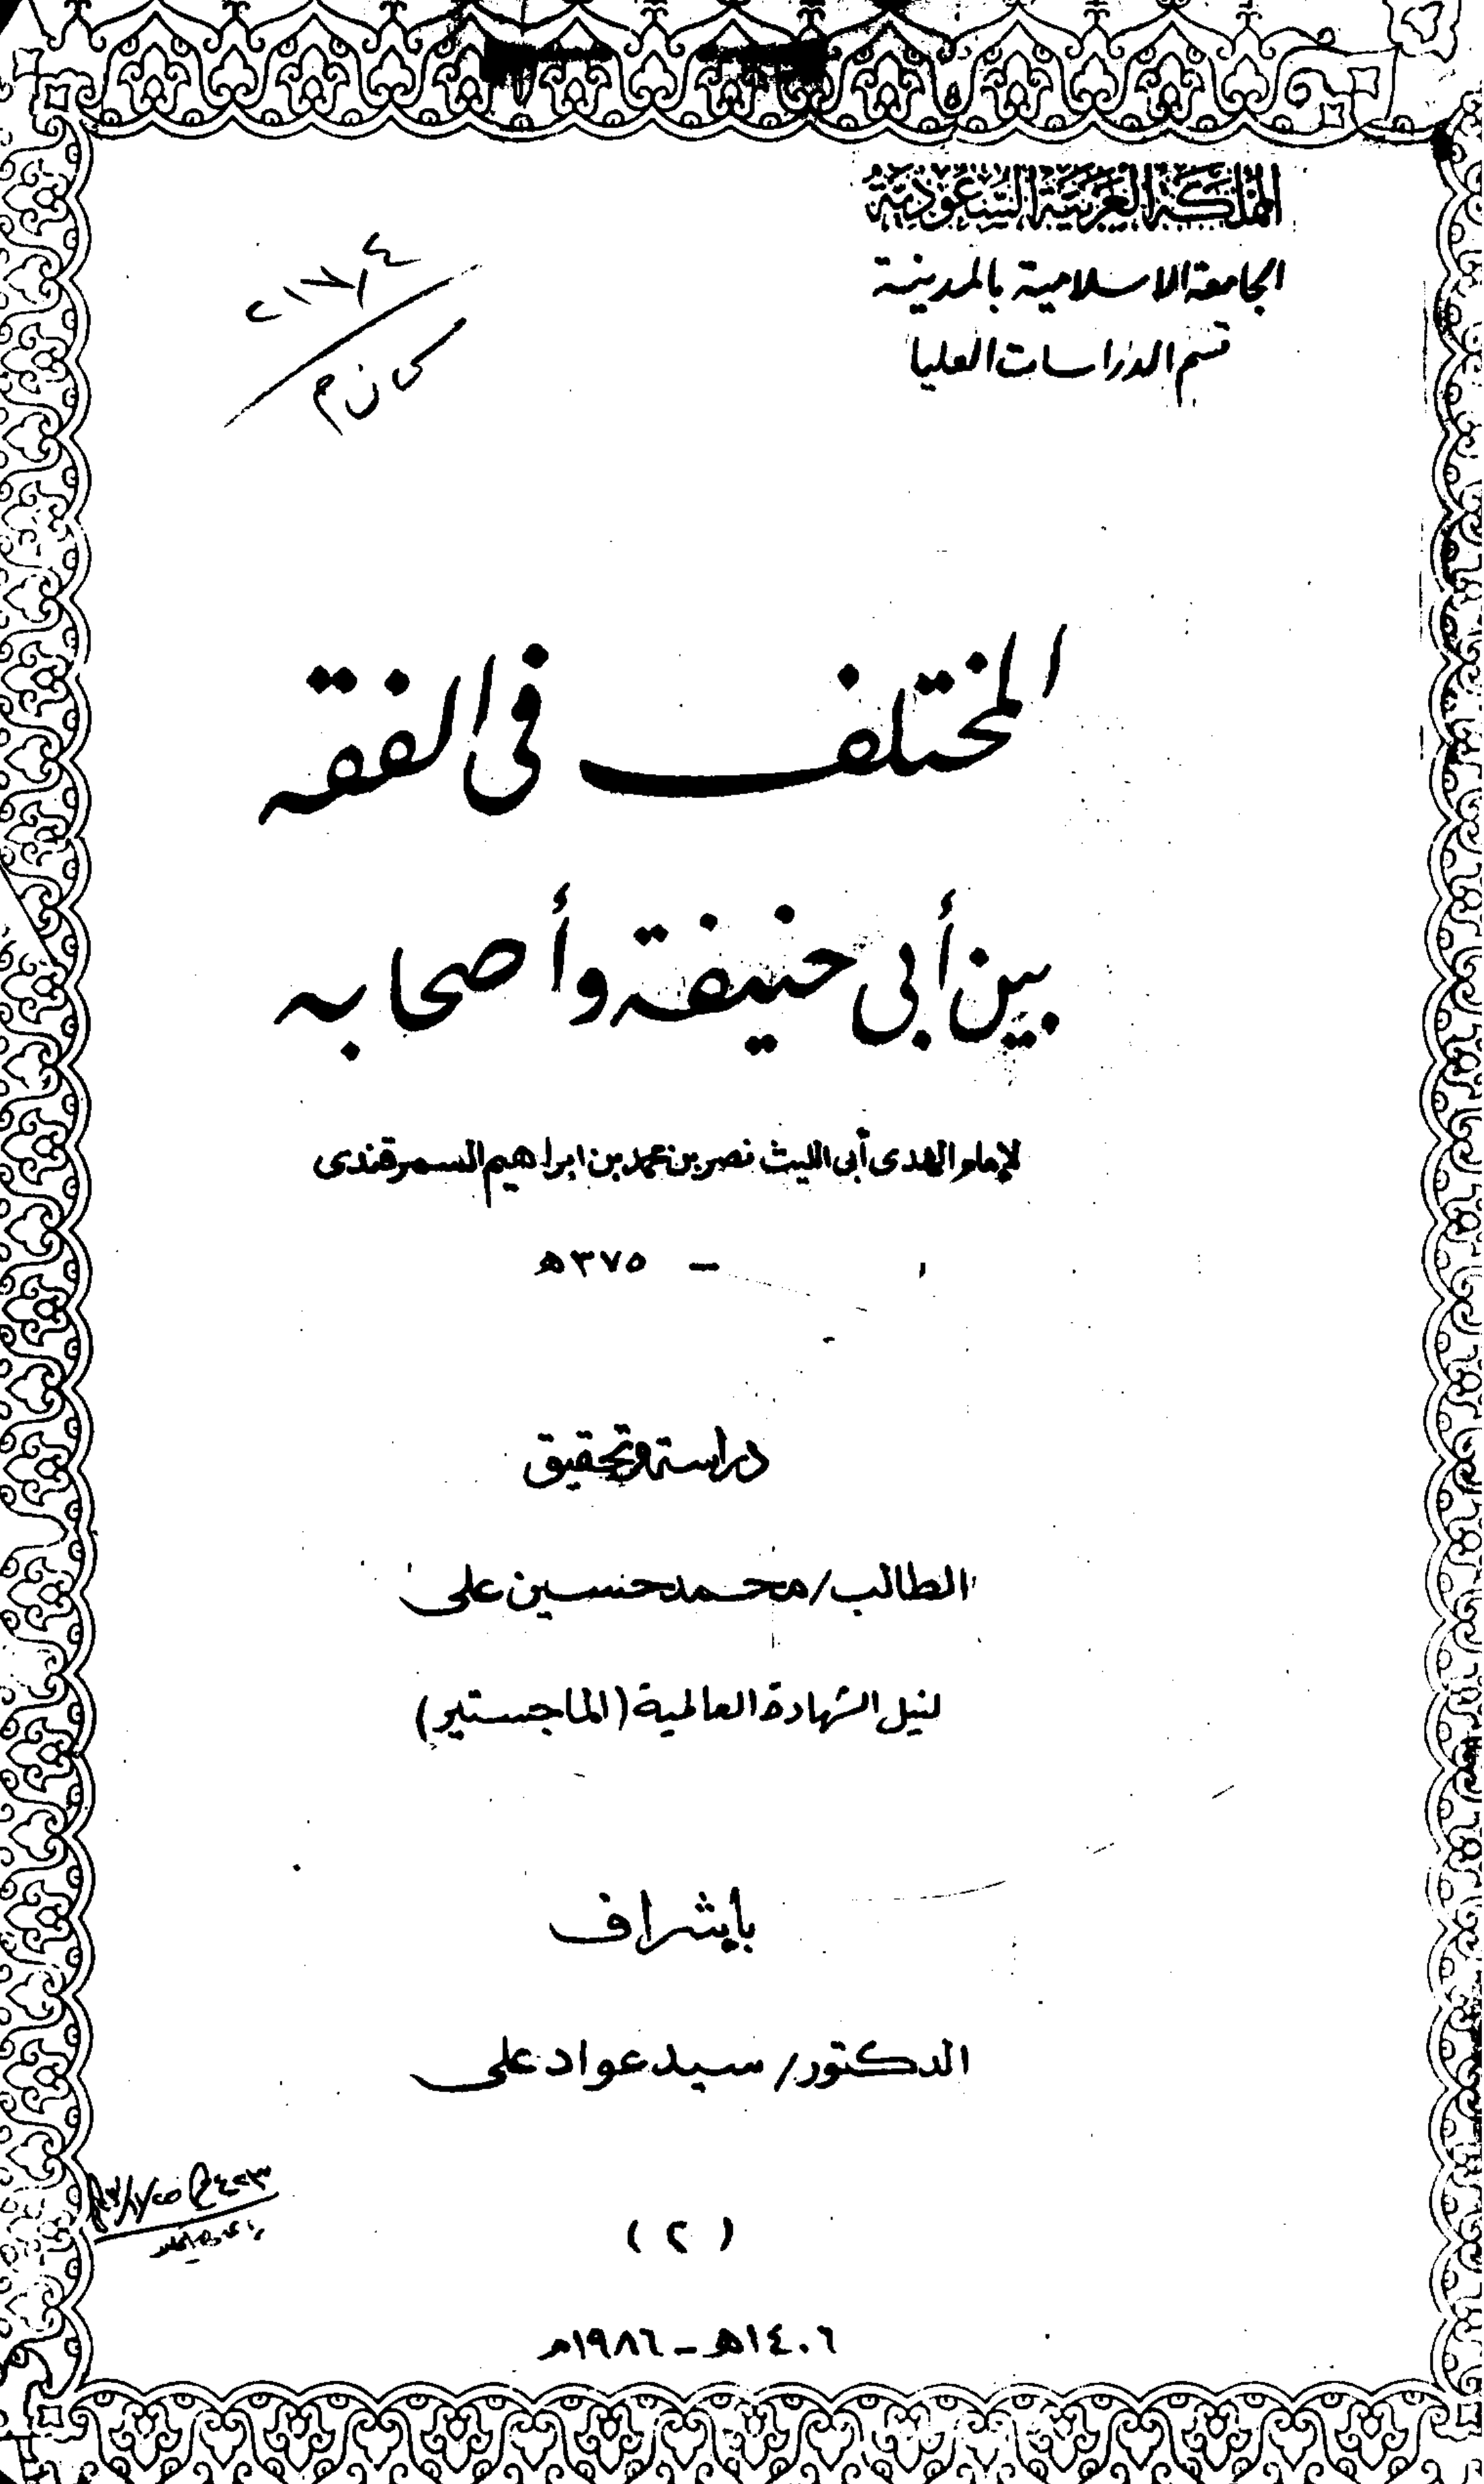 المملكة العربية السعودية
الجامعة الاسلامية بالمدينة
قسم الدراسات العليا
المختلف فى الفقه
بين أبى حنيفة وأصحابه
لإمام الهدى أبى الليث نصر بن محمد بن ابراهيم السمرقندى
- ٣٧٥ه
دراسة وتحقيق
الطالب/ محمد حسين على
لنيل الشهادة العالمية (الماجستير)
بإشراف
الدكتور/ سيد عواد على
(٢)
١٤٠٦ه - ١٩٨٦م